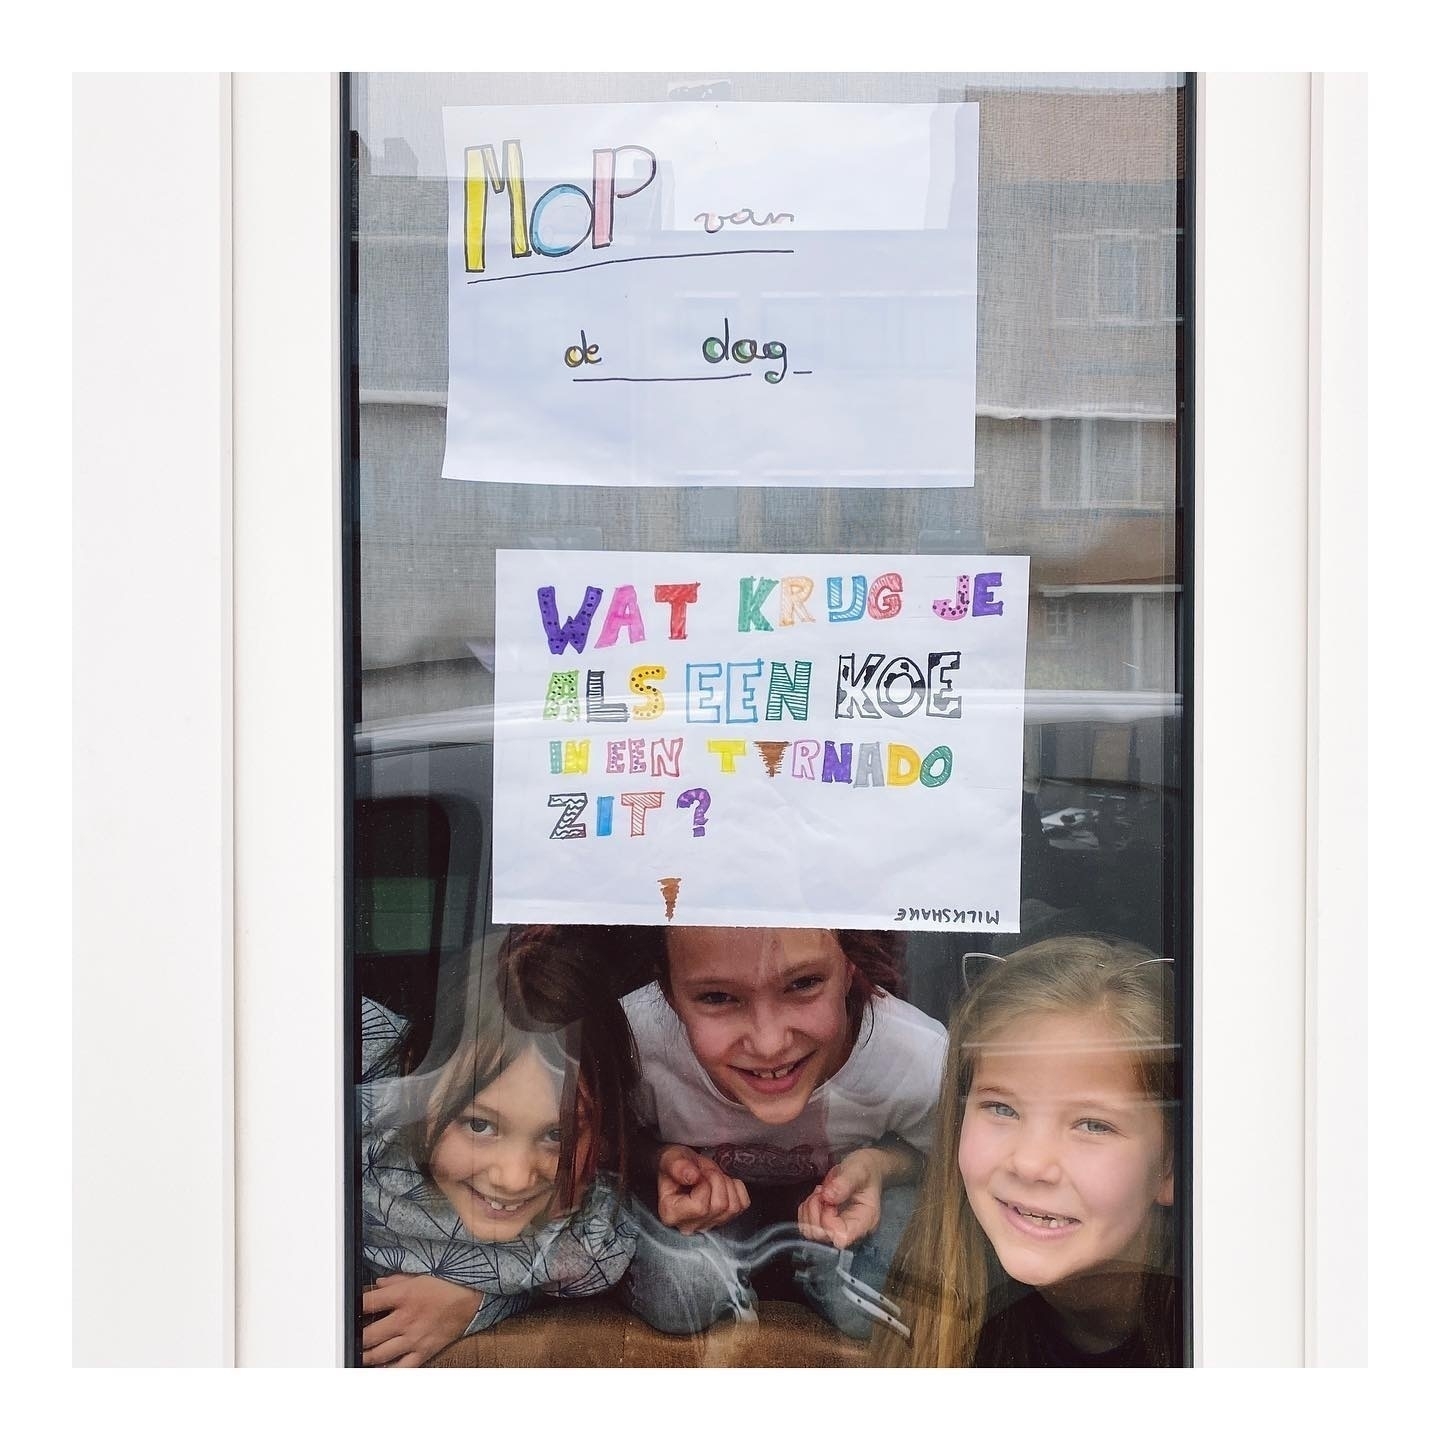 MOP van
de dag
WAT KRIJG JE
ALS EEN KOE
IN EEN TORNADO
ZIT?
MILKSHAKE